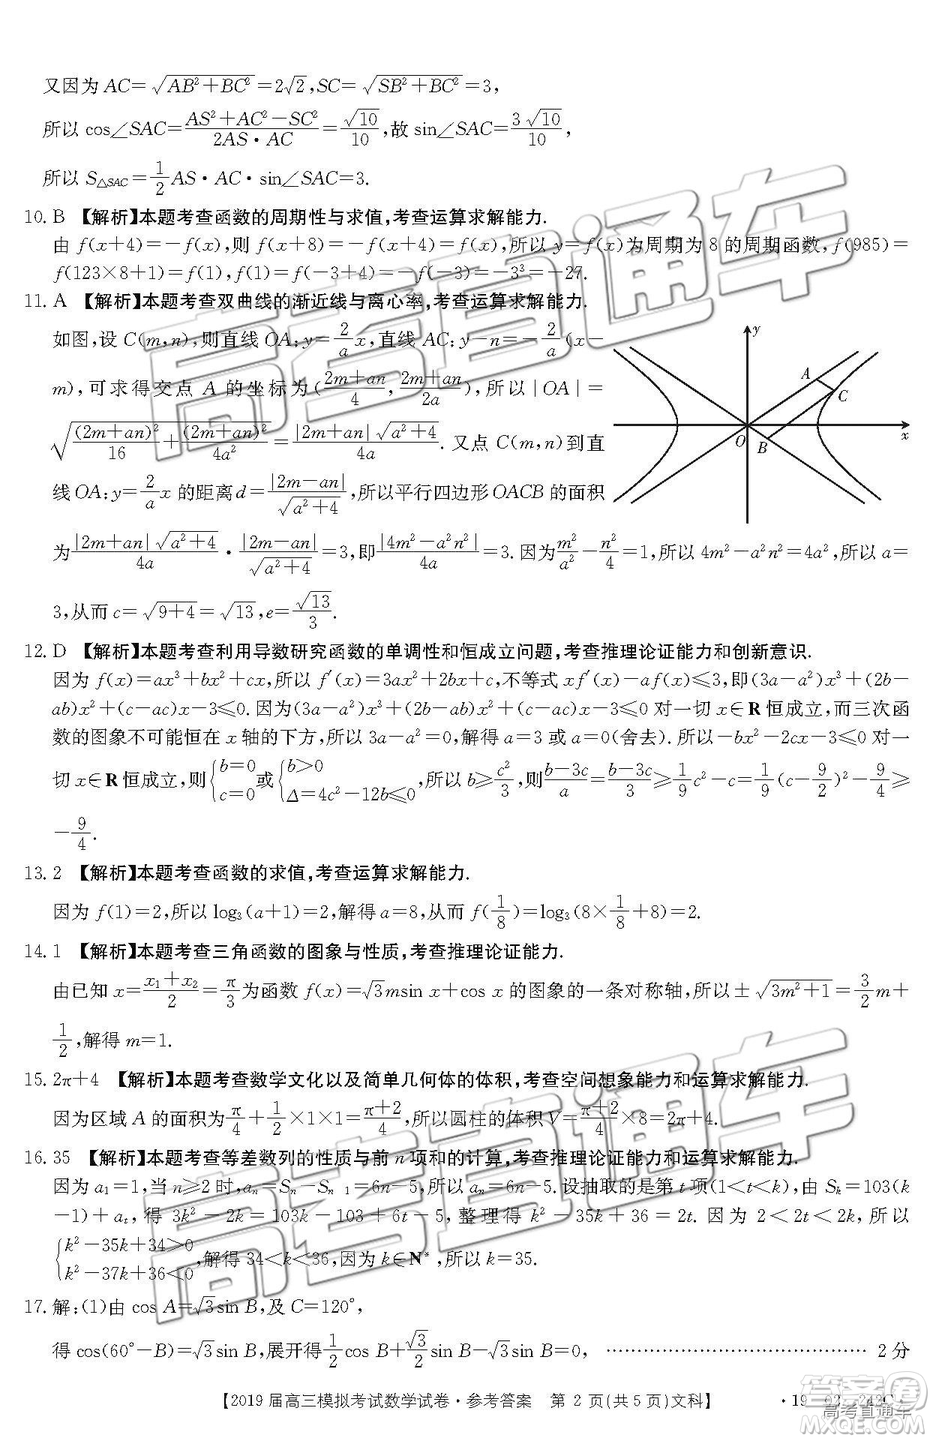 又因为 AC=√(AB²+BC²)=2√2,SC=√(SB²+BC²)=3,
所以 cos∠SAC=(AS²+AC²-SC²)/(2AS·AC)=√10/10,故 sin∠SAC=3√10/10,
所以 S△SAC=1/2 AS·AC·sin∠SAC=3.
10. B 【解析】本题考查函数的周期性与求值,考查运算求解能力.
由 f(x+4)=-f(x),则 f(x+8)=-f(x+4)=f(x),所以 y=f(x)为周期为 8 的周期函数,f(985)=
f(123×8+1)=f(1),f(1)=-f(-3)=f(3)=-3³=-27.
11. A 【解析】本题考查双曲线的渐近线与离心率,考查运算求解能力.
如图,设 C(m,n),则直线 OA:y=2/a x,直线 AC:y-n=-2/a(x-
m),可求得交点 A 的坐标为((2m+an)/4,(2m+an)/2a),所以|OA|=
√((2m+an)²/16+(2m+an)²/4a²)=|2m+an|√(a²+4)/4a.又点 C(m,n)到直
线 OA:y=2/a x 的距离 d=|2m-an|/√(a²+4),所以平行四边形 OACB 的面积
为|2m+an|√(a²+4)/4a·|2m-an|/√(a²+4)=3,即|4m²-a²n²|/4a=3.因为 m²/a²-n²/4=1,所以 4m²-a²n²=4a²,所以 a=
3,从而 c=√(9+4)=√13,e=√13/3.
y
A
C
O
B
x
12. D 【解析】本题考查利用导数研究函数的单调性和恒成立问题,考查推理论证能力和创新意识.
因为 f(x)=ax³+bx²+cx,所以 f′(x)=3ax²+2bx+c,不等式 xf′(x)-af(x)≤3,即(3a-a²)x³+(2b-
ab)x²+(c-ac)x-3≤0.因为(3a-a²)x³+(2b-ab)x²+(c-ac)x-3≤0 对一切 x∈R 恒成立,而三次函
数的图象不可能恒在 x 轴的下方,所以 3a-a²=0,解得 a=3 或 a=0(舍去).所以-bx²-2cx-3≤0 对一
切 x∈R 恒成立,则{b=0 c=0 或{b>0 Δ=4c²-12b≤0,所以 b≥c²/3,则(b-3c)/a=(b-3c)/3≥1/9 c²-c=1/9(c-9/2)²-9/4≥
-9/4.
13. 2 【解析】本题考查函数的求值,考查运算求解能力.
因为 f(1)=2,所以 log₃(a+1)=2,解得 a=8,从而 f(1/8)=log₃(8×1/8+8)=2.
14. 1 【解析】本题考查三角函数的图象与性质,考查推理论证能力.
由已知 x=(x₁+x₂)/2=π/3 为函数 f(x)=√3msin x+cos x 的图象的一条对称轴,所以±√(3m²+1)=3/2 m+
1/2,解得 m=1.
15. 2π+4 【解析】本题考查数学文化以及简单几何体的体积,考查空间想象能力和运算求解能力.
因为区域 A 的面积为 π/4+1/2×1×1=(π+2)/4,所以圆柱的体积 V=(π+2)/4×8=2π+4.
16. 35 【解析】本题考查等差数列的性质与前 n 项和的计算,考查推理论证能力和运算求解能力.
因为 a₁=1,当 n≥2 时,aₙ=Sₙ-Sₙ₋₁=6n-5,所以 aₙ=6n-5.设抽取的是第 t 项(1<t<k),由 Sₖ=103(k
-1)+aₜ,得 3k²-2k=103k-103+6t-5,整理得 k²-35k+36=2t.因为 2<2t<2k,所以
{k²-35k+34>0 k²-37k+36<0,解得 34<k<36,因为 k∈N*,所以 k=35.
17. 解:(1)由 cos A=√3sin B,及 C=120°,
得 cos(60°-B)=√3sin B,展开得 1/2 cos B+√3/2 sin B-√3sin B=0, ………………………… 2 分
【2019 届高三模拟考试数学试卷·参考答案 第 2 页(共 5 页)文科】
高考直通车
高考直通车
高考直通车